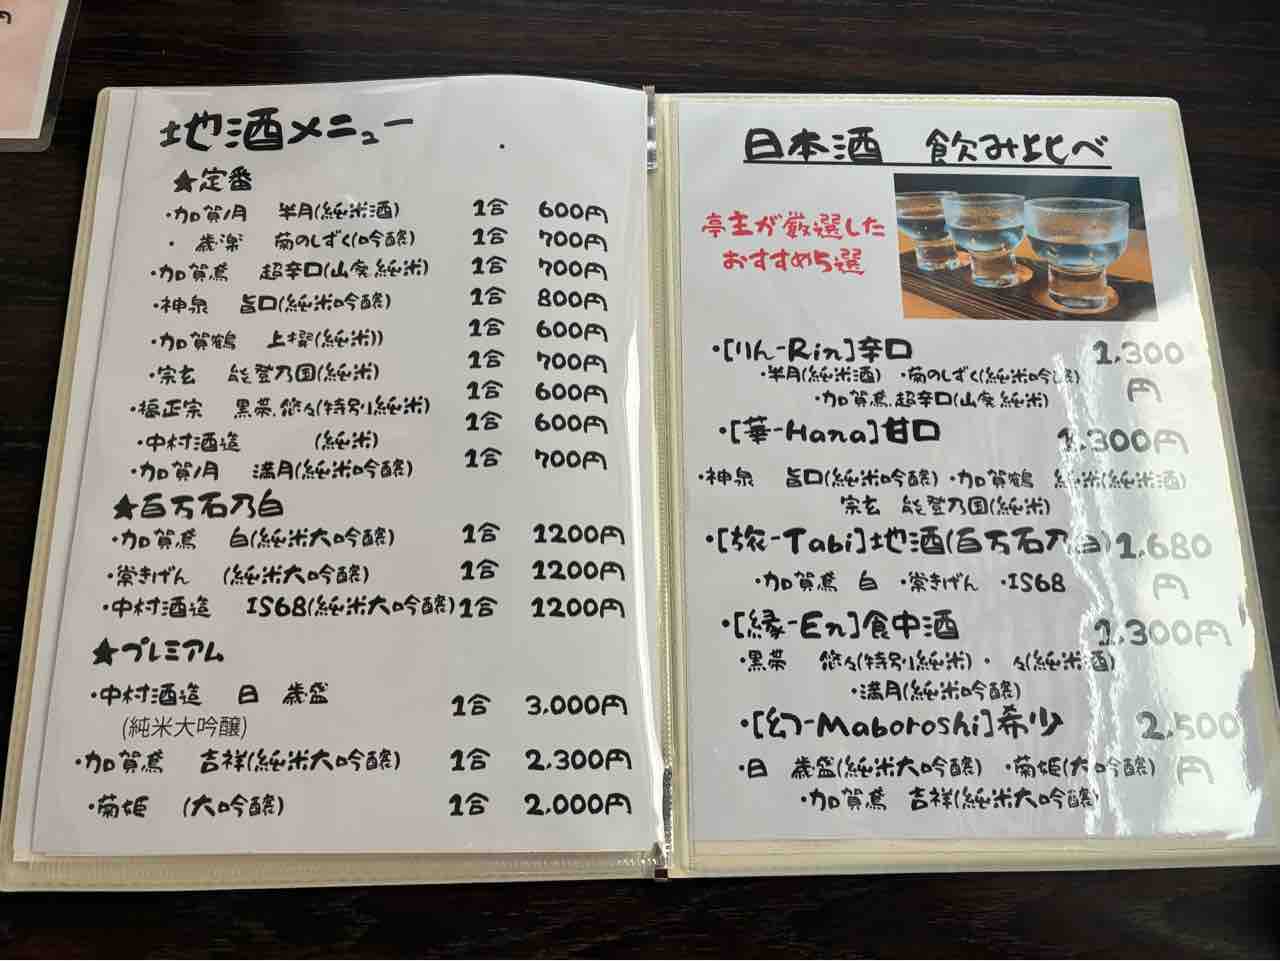 円
地酒メニュー
★定番
・加賀ノ月 半月(純米酒) 1合 600円
・歳楽 菊のしずく(吟醸) 1合 700円
・加賀鳶 超辛口(山廃純米) 1合 700円
・神泉 旨口(純米吟醸) 1合 800円
・加賀鶴 上撰(純米)) 1合 600円
・宗玄 能登乃国(純米) 1合 700円
・福正宗 黒帯.悠々(特別純米) 1合 600円
・中村酒造 (純米) 1合 600円
・加賀ノ月 満月(純米吟醸) 1合 700円
★百万石乃白
・加賀鳶 白(純米大吟醸) 1合 1200円
・常きげん (純米大吟醸) 1合 1200円
・中村酒造 IS68(純米大吟醸) 1合 1200円
★プレミアム
・中村酒造 日 歳盛 1合 3,000円
(純米大吟醸)
・加賀鳶 吉祥(純米大吟醸) 1合 2,300円
・菊姫 (大吟醸) 1合 2,000円
日本酒 飲み比べ
亭主が厳選した
おすすめ5選
・[りん-Rin]辛口 1,300
円
・半月(純米酒) ・菊のしずく(純米吟醸)
・加賀鳶.超辛口(山廃純米)
・[華-Hana]甘口 1,300円
・神泉 旨口(純米吟醸) ・加賀鶴 純米(純米酒)
宗玄 能登乃国(純米)
・[旅-Tabi]地酒(百万石乃白) 1,680
円
・加賀鳶 白 ・常きげん ・IS68
・[縁-En]食中酒 1,300円
・黒帯 悠々(特別純米) ・ 々(純米酒)
・満月(純米吟醸)
・[幻-Maboroshi]希少 2,500
円
・日 歳盛(純米大吟醸) ・菊姫(大吟醸)
・加賀鳶 吉祥(純米大吟醸)